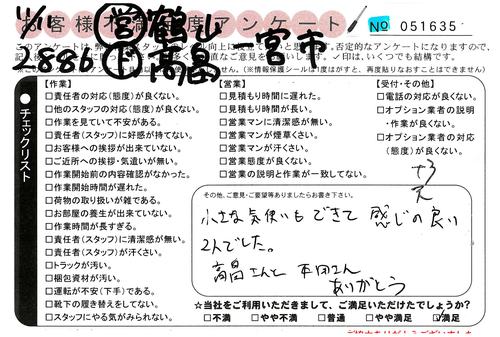 11/11 営 鶴山
お客様不満足度アンケート
No 051635
2886 下 高畠 宮市
満足度向上に役立て
否定的なアンケートになりますので、
✓印は、いくつでも結構です。
(※情報保護シールは1度はがすと、再度貼りなおすことはできません)
●チェックリスト
【作業】
□責任者の対応(態度)が良くない。
□他のスタッフの対応(態度)が良くない。
□作業を見ていて不安がある。
□責任者(スタッフ)に好感が持てない。
□お客様への挨拶が出来ていない。
□ご近所への挨拶・気遣いが無い。
□作業開始前の内容確認がなかった。
□作業開始時間が遅れた。
□荷物の取り扱いが雑である。
□お部屋の養生が出来ていない。
□作業時間が長すぎる。
□責任者(スタッフ)に清潔感が無い。
□責任者(スタッフ)が汗くさい。
□トラックが汚い。
□梱包資材が汚い。
□運転が不安(下手)である。
□靴下の履き替えをしてない。
□スタッフにやる気がみられない。
【営業】
□見積もり時間に遅れた。
□見積もり時間が長い。
□営業マンに清潔感が無い。
□営業マンが煙草くさい。
□営業マンが汗くさい。
□営業態度が良くない。
□営業の説明と作業が一致してない。
【受付・その他】
□電話の対応が良くない。
□オプション業者の説明
・作業が良くない。
□オプション業者の対応
(態度)が良くない。
その他、ご意見・ご要望等ありましたらお書き下さい。
小さな気使いもできて 感じの良い
2人でした。
高畠さんと 本田さん
ありがとう
☆当社をご利用いただきまして、ご満足いただけたでしょうか?
□不満 □やや不満 □普通 □やや満足 ☑満足